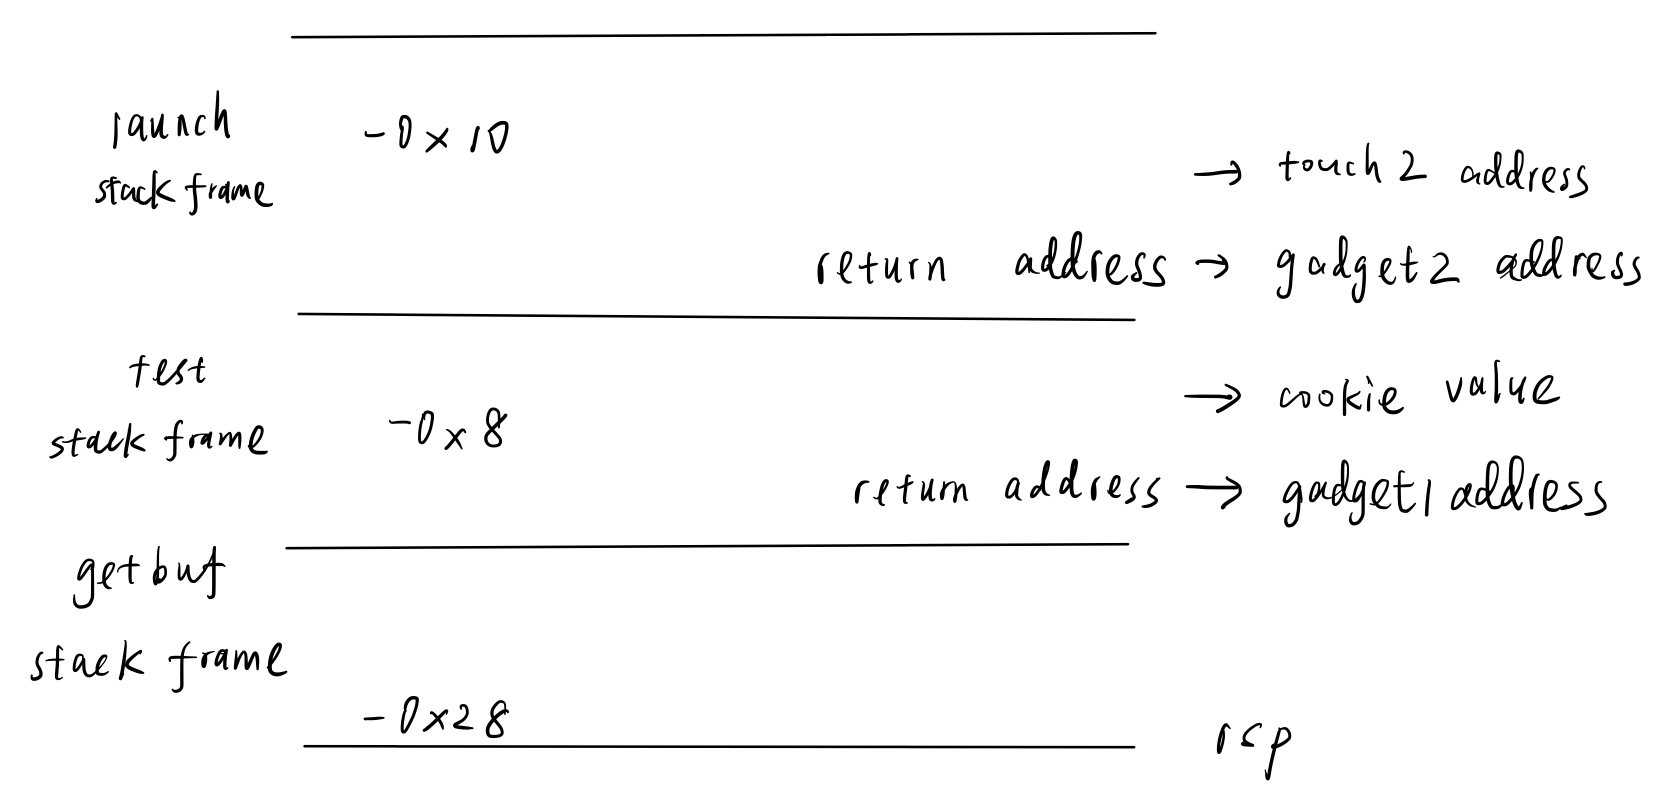 launch
stack frame
-0x10
→ touch2 address
return address → gadget2 address
test
stack frame
-0x8
→ cookie value
return address → gadget1 address
getbuf
stack frame
-0x28
rsp